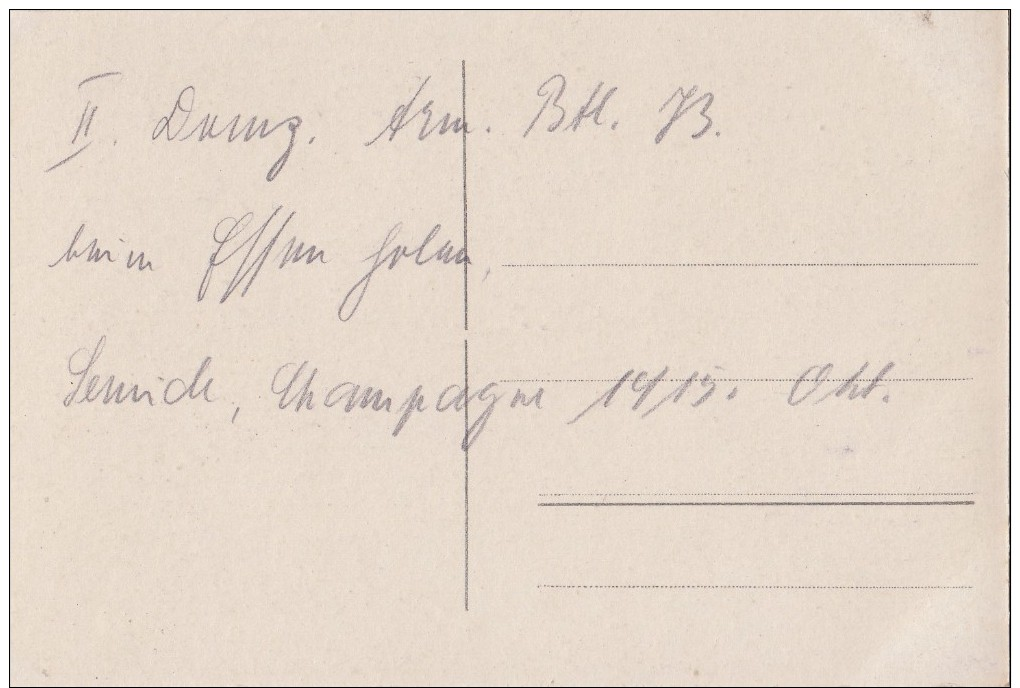 II. Komp. Arm. Btl. 73.
beim Essen holen,
Semide, Champagne 1915. Okt.